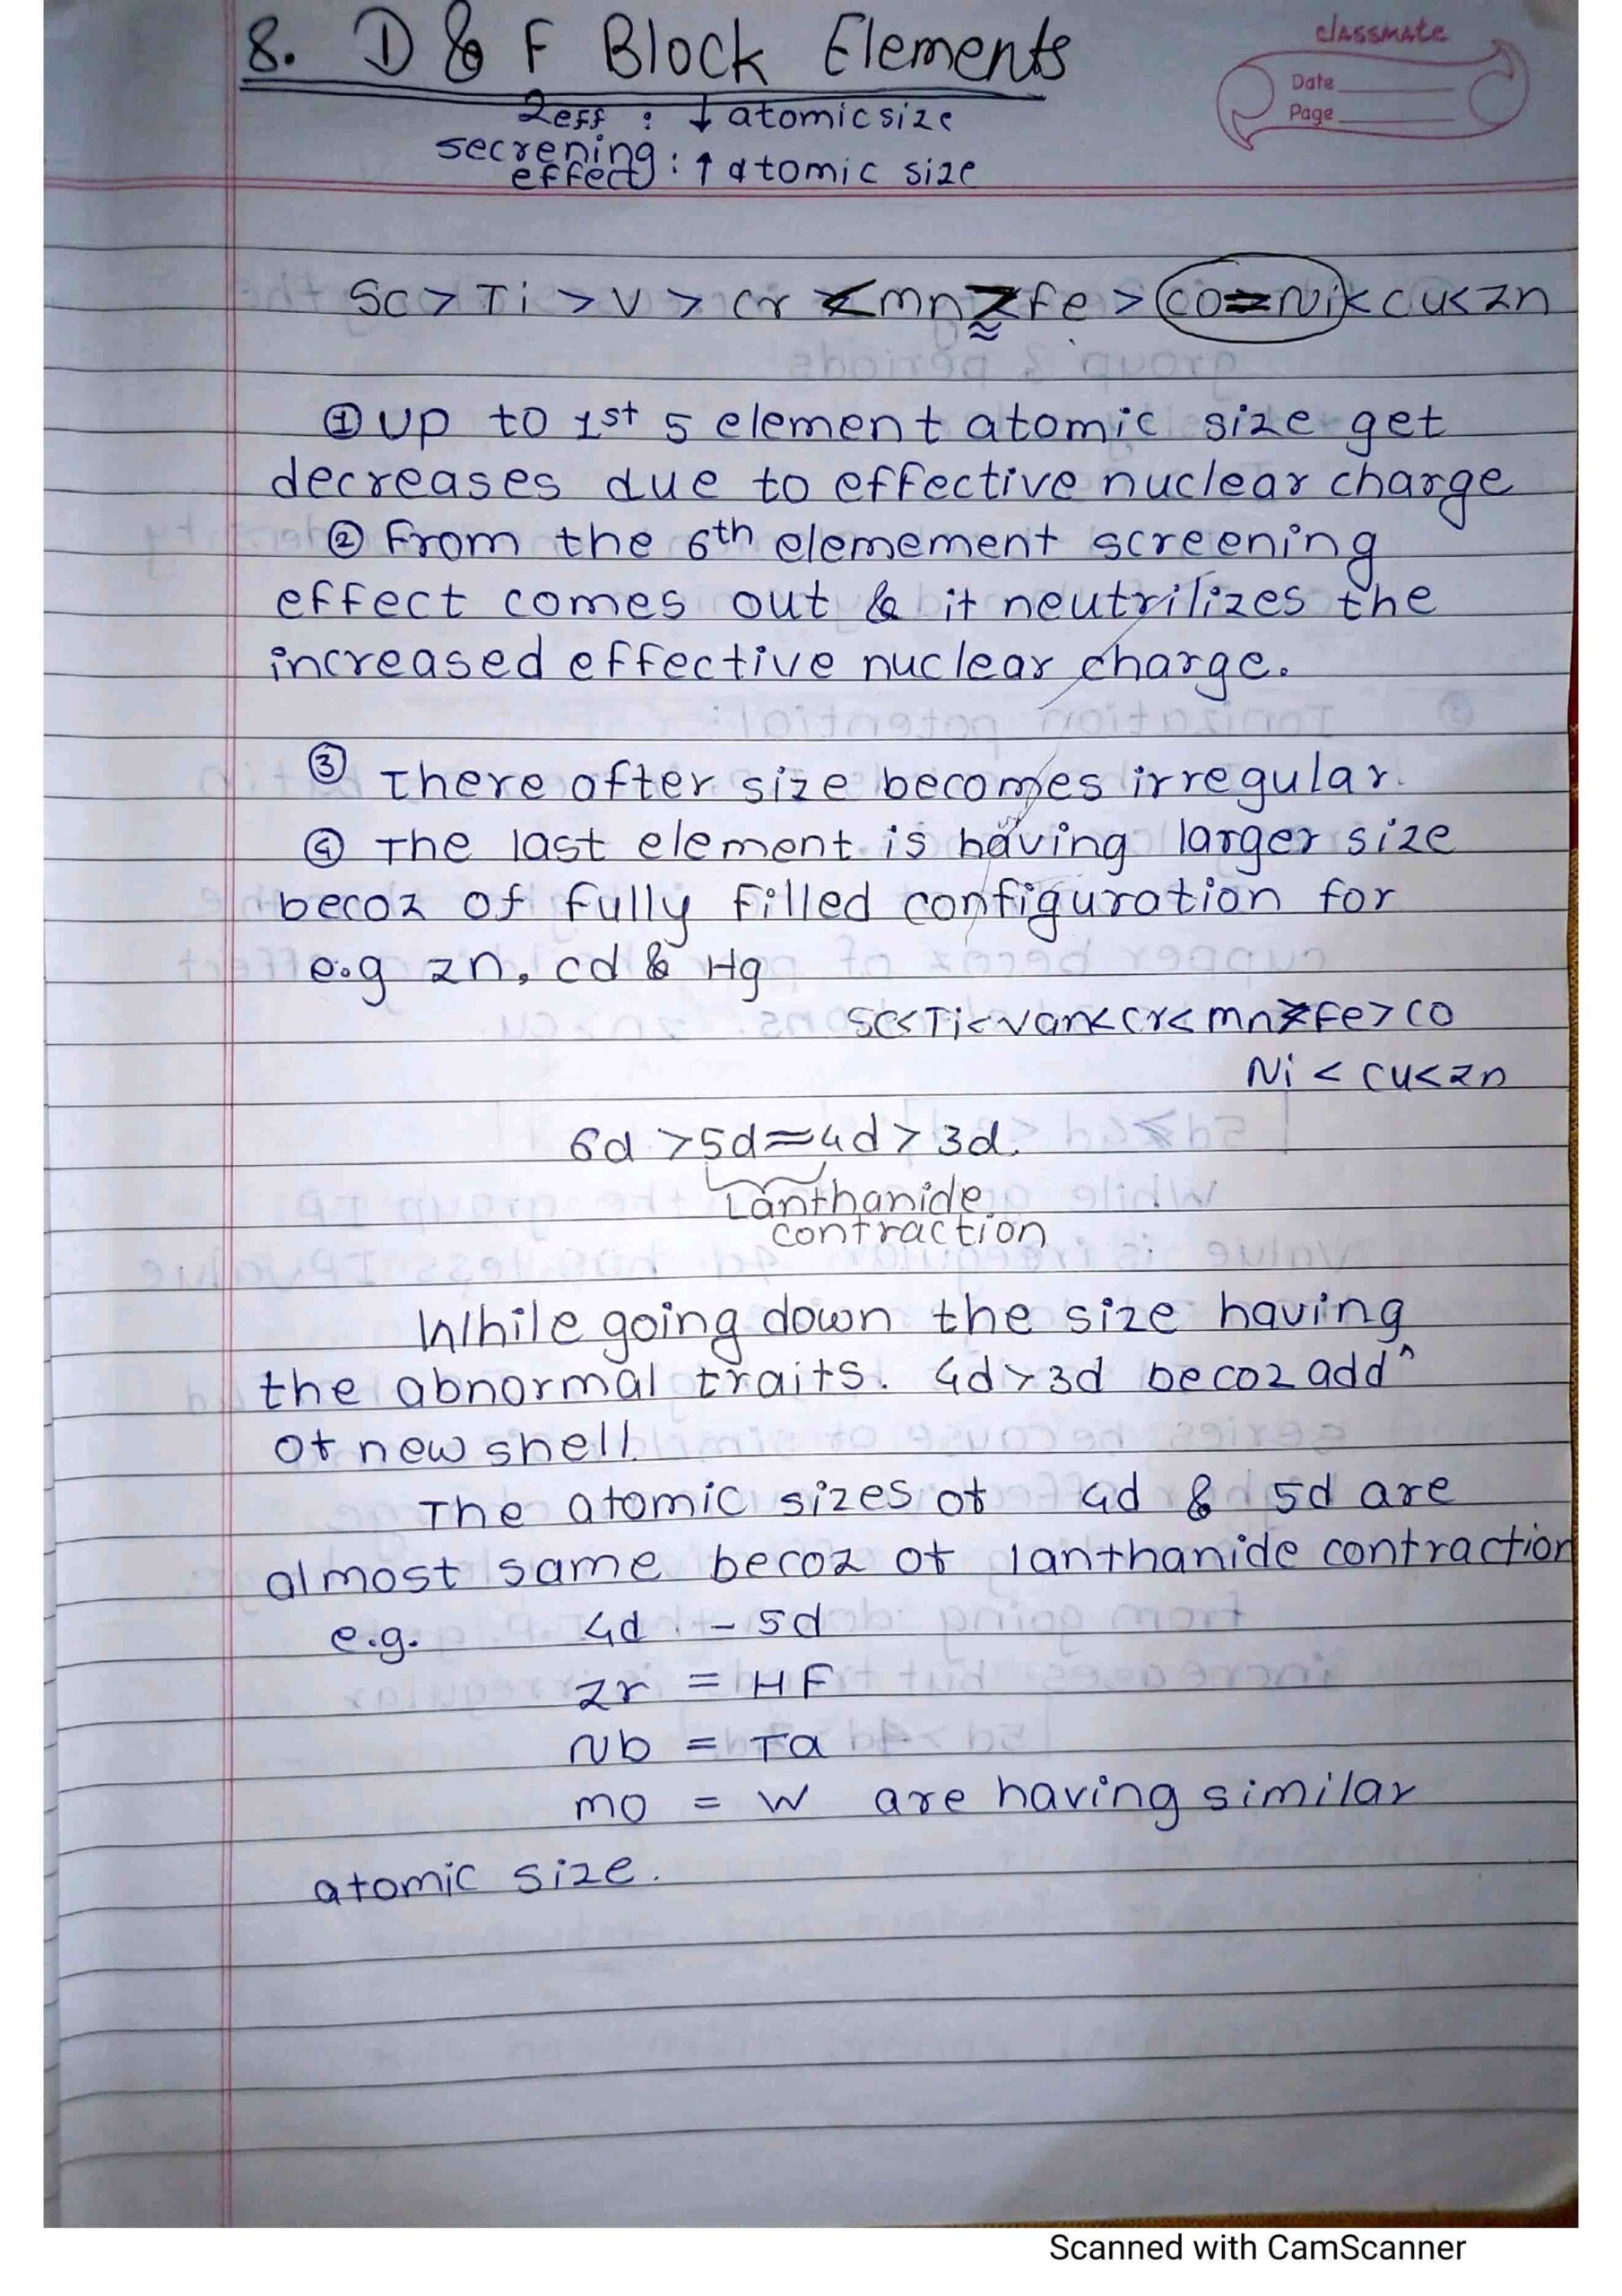 8. D & F Block Elements
classmate
Date
Page
Zeff : ↓ atomic size
secrening : ↑ atomic size
effect
Sc > Ti > V > Cr < mn ≳ fe > co = Ni < cu < zn
① up to 1st 5 element atomic size get
decreases due to effective nuclear charge
② from the 6th elemement screening
effect comes out & it neutrilizes the
increased effective nuclear charge.
③ There after size becomes irregular.
④ The last element is having larger size
becoz of fully filled configuration for
e.g zn, cd & Hg
Sc < Ti < van < cr < mn > fe > co
Ni < cu < zn
6d > 5d = 4d > 3d.
Lanthanide
contraction
While going down the size having
the abnormal traits. 4d > 3d becoz add^
of new shell.
The atomic sizes of 4d & 5d are
almost same becoz of lanthanide contraction
e.g. 4d - 5d
zr = HF
Nb = Ta
mo = W are having similar
atomic size.
Scanned with CamScanner